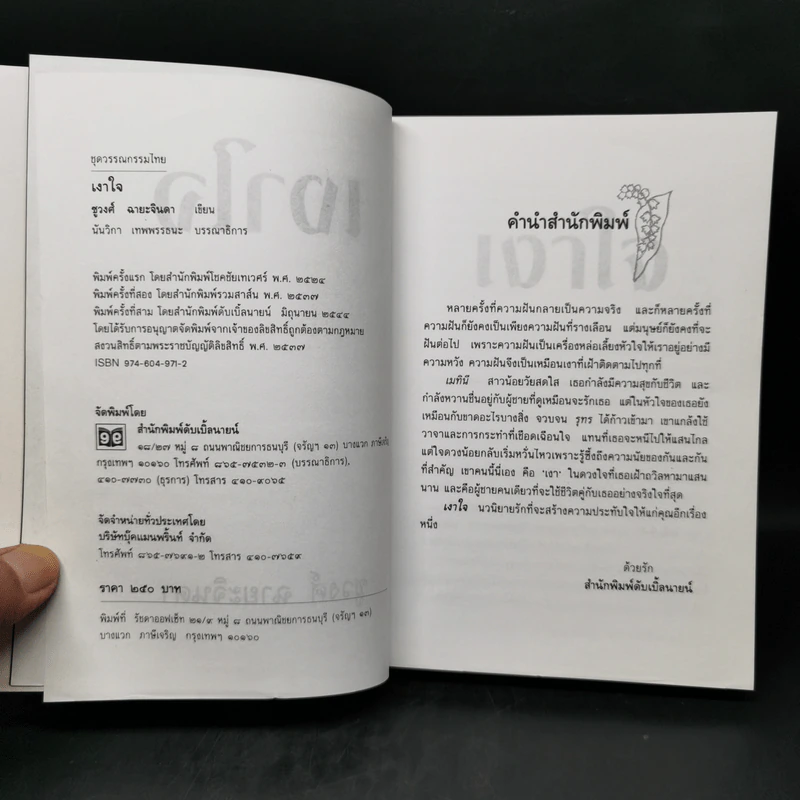 ชุดวรรณกรรมไทย
เงาใจ
ชูวงศ์ ฉายะจินดา เขียน
นันวิกา เทพพรรธนะ บรรณาธิการ
พิมพ์ครั้งแรก โดยสำนักพิมพ์โชคชัยเทเวศร์ พ.ศ. ๒๕๒๔
พิมพ์ครั้งที่สอง โดยสำนักพิมพ์รวมสาส์น พ.ศ. ๒๕๓๗
พิมพ์ครั้งที่สาม โดยสำนักพิมพ์ดับเบิ้ลนายน์ มิถุนายน ๒๕๔๔
โดยได้รับการอนุญาตจัดพิมพ์จากเจ้าของลิขสิทธิ์ถูกต้องตามกฎหมาย
สงวนสิทธิ์ตามพระราชบัญญัติลิขสิทธิ์ พ.ศ. ๒๕๓๗
ISBN 974-604-971-2
จัดพิมพ์โดย
สำนักพิมพ์ดับเบิ้ลนายน์
๑๘/๒๗ หมู่ ๘ ถนนพาณิชยการธนบุรี (จรัญฯ ๑๓) บางแวก ภาษีเจริญ
กรุงเทพฯ ๑๐๑๖๐ โทรศัพท์ ๘๖๕-๗๕๓๒-๓ (บรรณาธิการ),
๔๑๐-๗๗๓๐ (ธุรการ) โทรสาร ๔๑๐-๙๐๖๕
จัดจำหน่ายทั่วประเทศโดย
บริษัทบุ๊คแมนพริ้นท์ จำกัด
โทรศัพท์ ๘๖๕-๗๖๙๑-๒ โทรสาร ๔๑๐-๗๖๕๙
ราคา ๒๕๐ บาท
พิมพ์ที่ รัชดาออฟเซ็ท ๒๑/๙ หมู่ ๘ ถนนพาณิชยการธนบุรี (จรัญฯ ๑๓)
บางแวก ภาษีเจริญ กรุงเทพฯ ๑๐๑๖๐
คำนำสำนักพิมพ์
หลายครั้งที่ความฝันกลายเป็นความจริง และก็หลายครั้งที่
ความฝันก็ยังคงเป็นเพียงความฝันที่รางเลือน แต่มนุษย์ก็ยังคงที่จะ
ฝันต่อไป เพราะความฝันเป็นเครื่องหล่อเลี้ยงหัวใจให้เราอยู่อย่างมี
ความหวัง ความฝันจึงเป็นเหมือนเงาที่เฝ้าติดตามไปทุกที่
เมทินี สาวน้อยวัยสดใส เธอกำลังมีความสุขกับชีวิต และ
กำลังหวานชื่นอยู่กับผู้ชายที่ดูเหมือนจะรักเธอ แต่ในหัวใจของเธอยัง
เหมือนกับขาดอะไรบางสิ่ง จวบจน รุทร ได้ก้าวเข้ามา เขาแกล้งใช้
วาจาและการกระทำที่เชือดเฉือนใจ แทนที่เธอจะหนีไปให้แสนไกล
แต่ใจดวงน้อยกลับเริ่มหวั่นไหวเพราะรู้ซึ้งถึงความนัยของกันและกัน
ที่สำคัญ เขาคนนี้นี่เอง คือ 'เงา' ในดวงใจที่เธอเฝ้าถวิลหามาแสน
นาน และคือผู้ชายคนเดียวที่จะใช้ชีวิตคู่กับเธออย่างจริงใจที่สุด
เงาใจ นวนิยายรักที่จะสร้างความประทับใจให้แก่คุณอีกเรื่อง
หนึ่ง
ด้วยรัก
สำนักพิมพ์ดับเบิ้ลนายน์